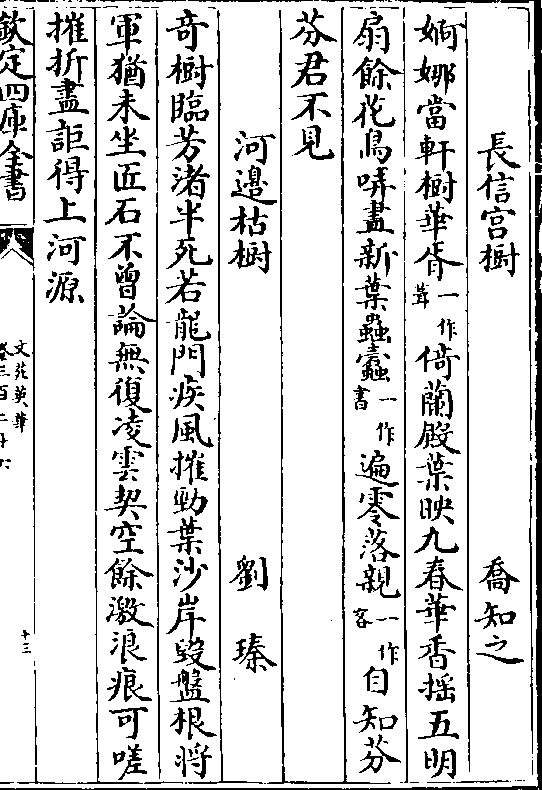 長信宮樹　喬知之
婀娜當軒樹華胥一作葺倚蘭殿葉映九春華香揺五明
扇餘花鳥哢盡新葉蟲蠧一作書遍零落親一作客自知芬
芬君不見
河邊枯樹　劉瑧
竒樹臨芳渚半死若龍門疾風摧勁葉沙岸毀盤根将
軍猶未坐匠石不曽論無復凌雲契空餘激浪痕可嗟
摧折盡詎得上河源
欽定四庫全書
文苑英華
卷三百二十六
十三